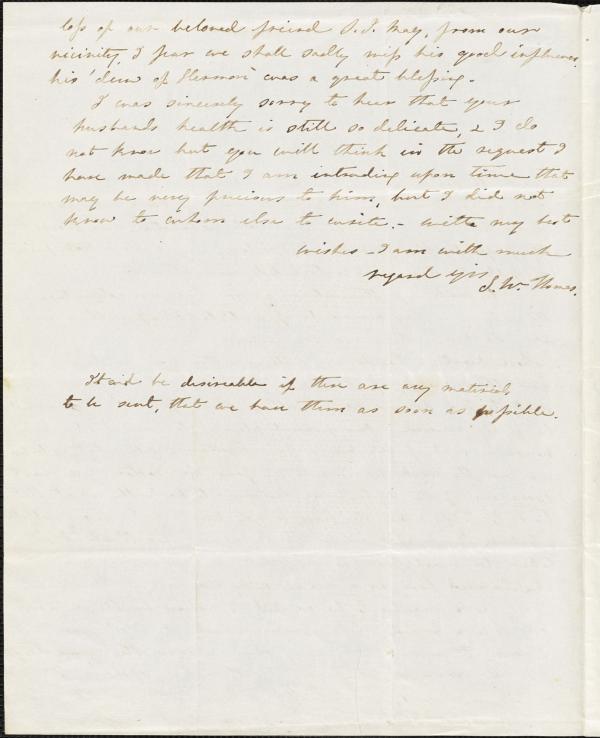 loss of our beloved friend S. J. May, from our
vicinity, I fear we shall sadly miss his good influence,
his 'dew of Hermon' was a great blessing.
I was sincerely sorry to hear that your
husbands health is still so delicate, & I do
not know but you will think in the request I
have made that I am intruding upon time that
may be very precious to him, but I did not
know to whom else to write. - with my best
wishes - I am with much
regard yrs
S. W. Thomas.
It wd be desireable if there are any materials
to be sent, that we have them as soon as possible.